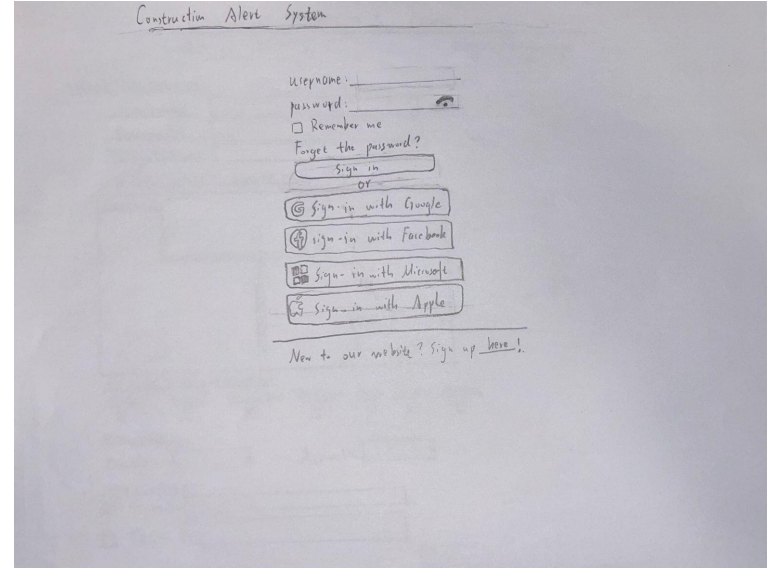 Construction Alert System
username:
password:
Remember me
Forget the password?
Sign in
or
Sign-in with Google
sign-in with Facebook
Sign-in with Microsoft
Sign-in with Apple
New to our website? Sign up here!